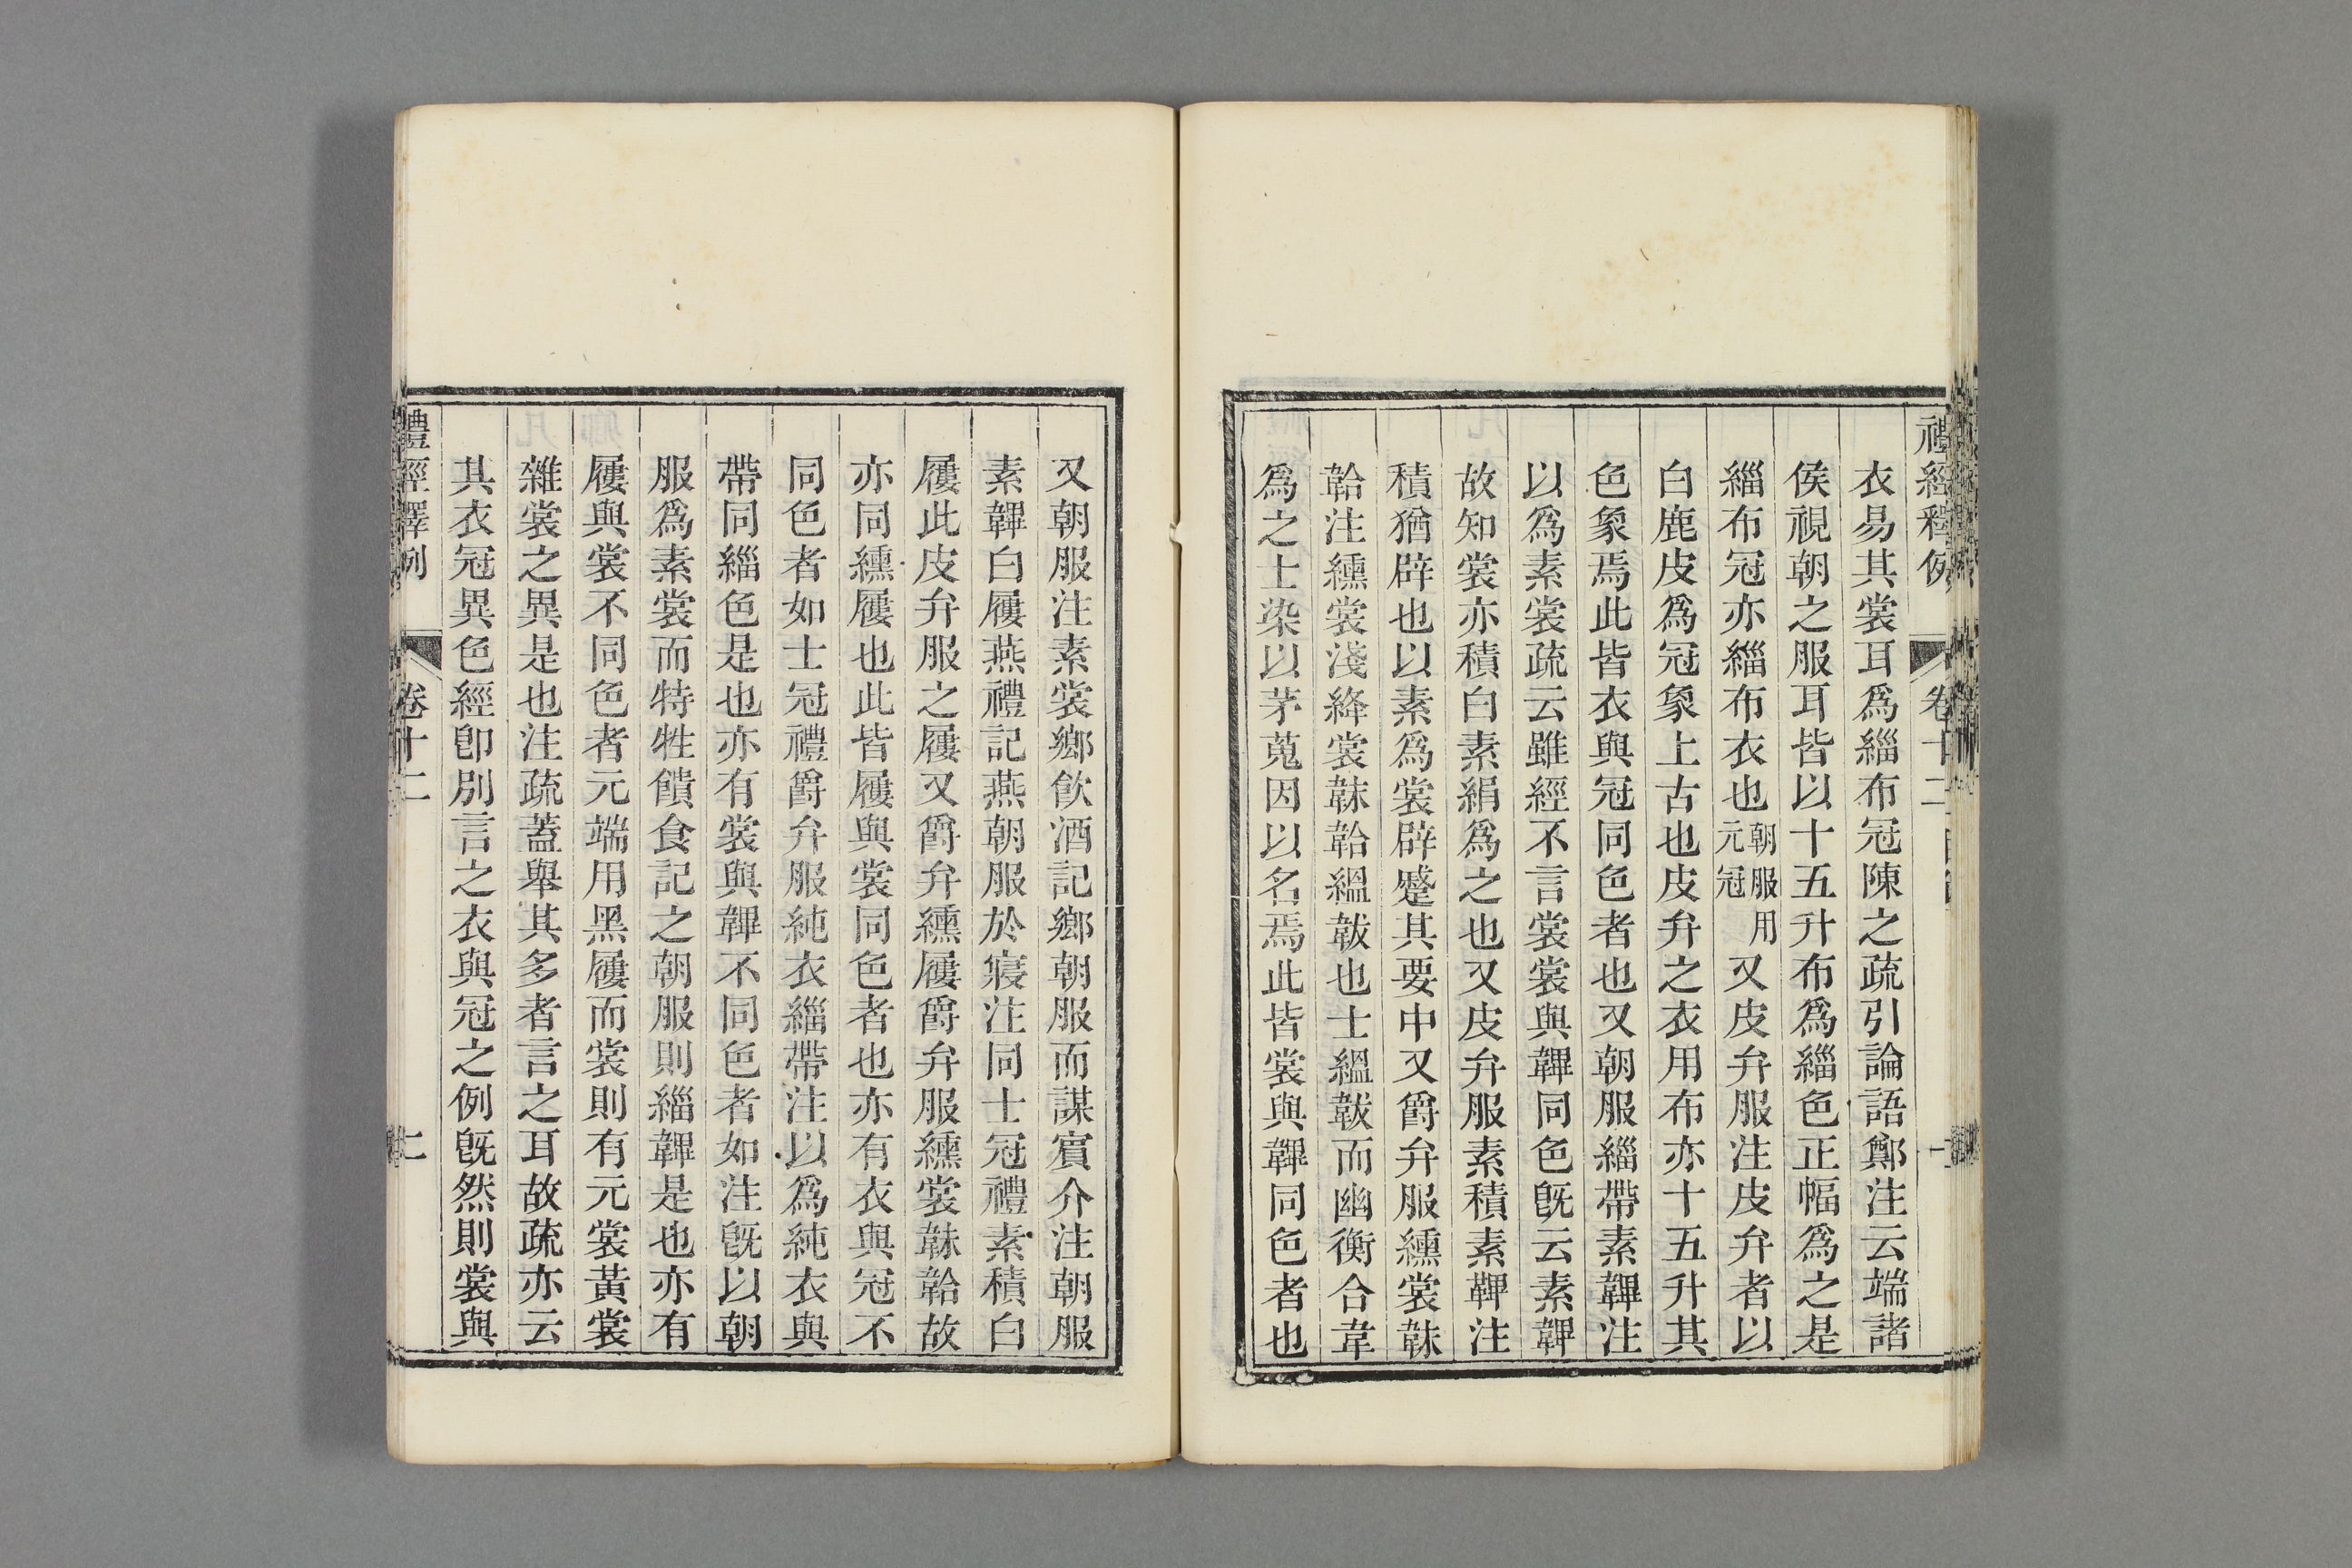 禮經釋例 卷十二
衣易其裳耳爲緇布冠陳之疏引論語鄭注云端諸
侯視朝之服耳皆以十五升布爲緇色正幅爲之是
緇布冠亦緇布衣也朝服用元冠又皮弁服注皮弁者以
白鹿皮爲冠象上古也皮弁之衣用布亦十五升其
色象焉此皆衣與冠同色者也又朝服緇帶素韠注
以爲素裳疏云雖經不言裳裳與韠同色旣云素韠
故知裳亦積白素絹爲之也又皮弁服素積素鞸注
積猶辟也以素爲裳辟蹙其要中又爵弁服纁裳韎
韐注纁裳淺絳裳韎韐縕韍也士縕韍而幽衡合韋
爲之士染以茅蒐因以名焉此皆裳與韠同色者也
又朝服注素裳鄉飮酒記鄉朝服而謀賓介注朝服
素韠白屨燕禮記燕朝服於寢注同士冠禮素積白
屨此皮弁服之屨又爵弁纁屨爵弁服纁裳韎韐故
亦同纁屨也此皆屨與裳同色者也亦有衣與冠不
同色者如士冠禮爵弁服純衣緇帶注以爲純衣與
帶同緇色是也亦有裳與韠不同色者如注旣以朝
服爲素裳而特牲饋食記之朝服則緇韠是也亦有
屨與裳不同色者元端用黑屨而裳則有元裳黃裳
雜裳之異是也注疏蓋舉其多者言之耳故疏亦云
其衣冠異色經卽別言之衣與冠之例旣然則裳與
禮經釋例 卷十二